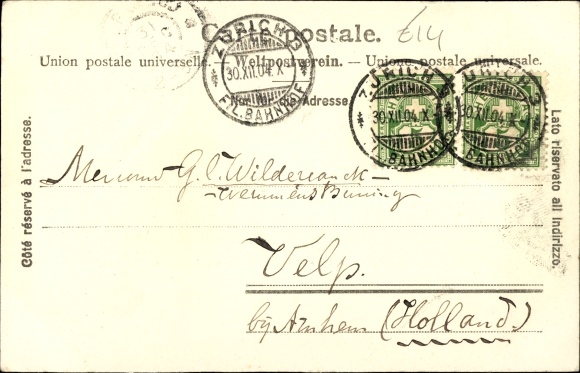 Carte postale.
£14
Union postale universelle. — Weltpostverein. — Unione postale universale.
ZÜRICH 3
30.XII.04.X
FIL. BAHNHOF
ZÜRICH 3
30.XII.04.X
FIL. BAHNHOF
ZÜRICH 3
30.XII.04.X
FIL. BAHNHOF
Nur für die Adresse.
Côté réservé à l'adresse.
Lato riservato all indirizzo.
G. L. Wildervanck —
Velp.
bij Arnhem (Holland.)